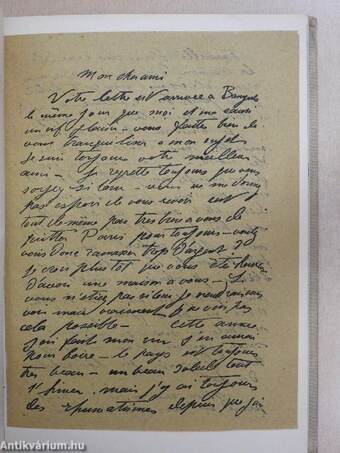 Mon cher ami
Votre lettre est arrivée a Banyuls
le même jour que moi et m'a causé
un vif plaisir – vous faites bien de
vous tranquilliser a mon sujet
Je suis toujours votre meilleur
ami – Je regrette toujours que vous
soyez si loin – vous ne me donnez
pas espoir de vous revoir c'est
tout de même pas très bien a vous de
quitter Paris pour toujours – voulez
vous donc ramasser trop d'argent
je crois plus tot que vous été heureux
d'avoir une maison a vous – Si
vous n'étiez pas si loin je voudrais
vous voir mais vraiment je ne vois pas
cela possible – cette année
j'ai fait mon vin j'en aurai
pour boire – le pays est toujours
très beau – un beau soleil tout
l'hiver. mais j'y ai toujours
des rhumatismes depuis que j'ai
antikvarium.hu